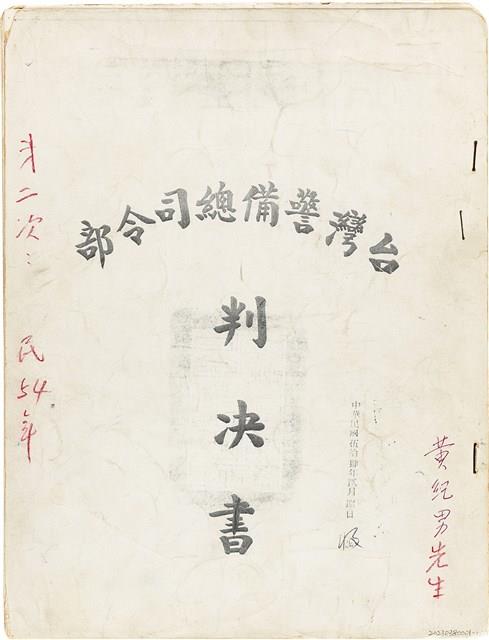 台灣警備總司令部
判决書
黃紀男先生
中華民國伍拾肆年貳月 日
第二次:民54年